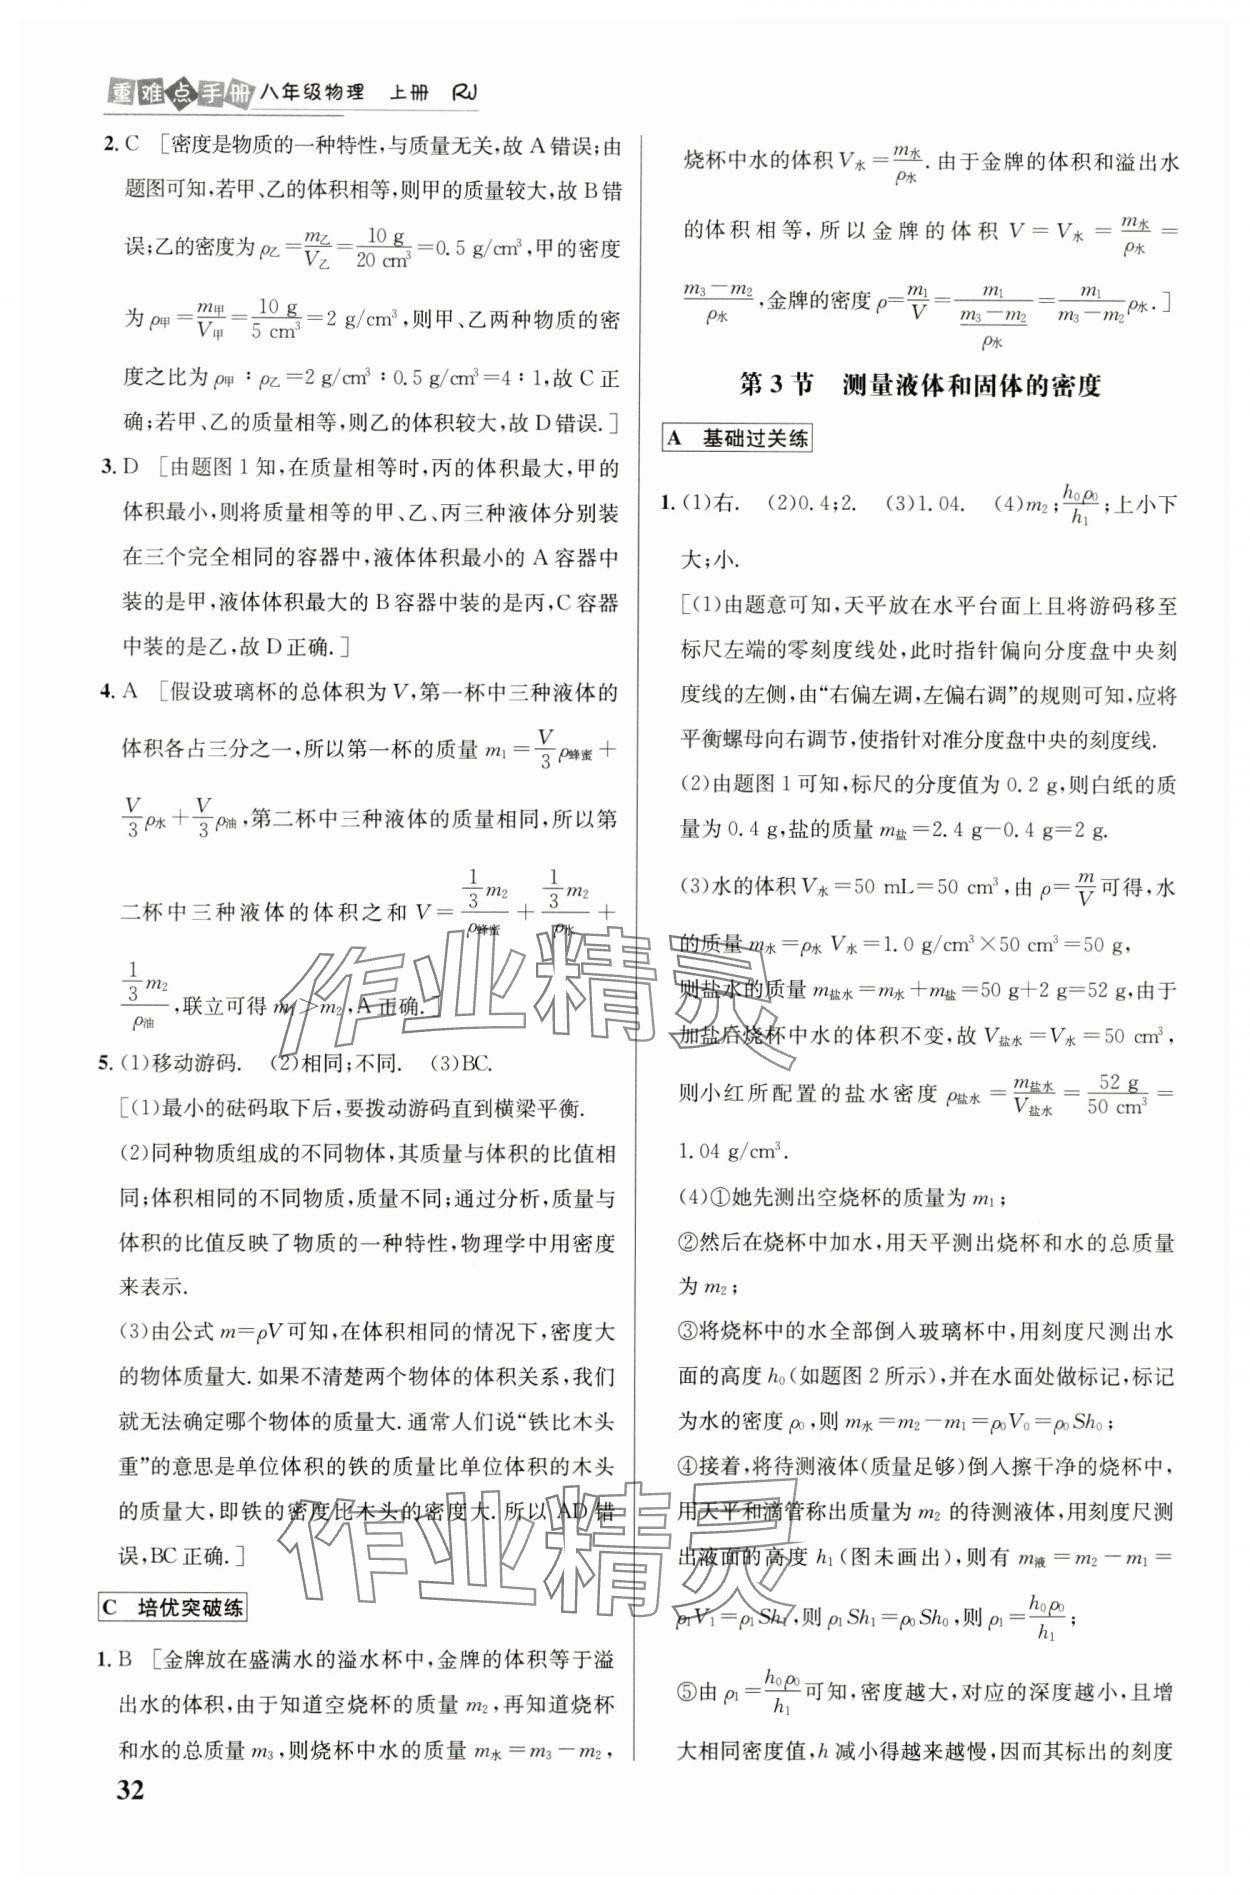 重难点手册 八年级物理 上册 RJ
2. C [密度是物质的一种特性,与质量无关,故 A 错误;由
题图可知,若甲、乙的体积相等,则甲的质量较大,故 B 错
误;乙的密度为 ρ乙=m乙/V乙=10 g/20 cm³=0.5 g/cm³,甲的密度
为 ρ甲=m甲/V甲=10 g/5 cm³=2 g/cm³,则甲、乙两种物质的密
度之比为 ρ甲∶ρ乙=2 g/cm³∶0.5 g/cm³=4∶1,故 C 正
确;若甲、乙的质量相等,则乙的体积较大,故 D 错误.]
3. D [由题图 1 知,在质量相等时,丙的体积最大,甲的
体积最小,则将质量相等的甲、乙、丙三种液体分别装
在三个完全相同的容器中,液体体积最小的 A 容器中
装的是甲,液体体积最大的 B 容器中装的是丙,C 容器
中装的是乙,故 D 正确.]
4. A [假设玻璃杯的总体积为 V,第一杯中三种液体的
体积各占三分之一,所以第一杯的质量 m₁=V/3 ρ蜂蜜+
V/3 ρ水+V/3 ρ油,第二杯中三种液体的质量相同,所以第
二杯中三种液体的体积之和 V=(1/3 m₂)/ρ蜂蜜+(1/3 m₂)/ρ水+
(1/3 m₂)/ρ油,联立可得 m₁>m₂,A 正确.]
5. (1)移动游码. (2)相同;不同. (3)BC.
[(1)最小的砝码取下后,要拨动游码直到横梁平衡.
(2)同种物质组成的不同物体,其质量与体积的比值相
同;体积相同的不同物质,质量不同;通过分析,质量与
体积的比值反映了物质的一种特性,物理学中用密度
来表示.
(3)由公式 m=ρV 可知,在体积相同的情况下,密度大
的物体质量大.如果不清楚两个物体的体积关系,我们
就无法确定哪个物体的质量大.通常人们说“铁比木头
重”的意思是单位体积的铁的质量比单位体积的木头
的质量大,即铁的密度比木头的密度大.所以 AD 错
误,BC 正确.]
C 培优突破练
1. B [金牌放在盛满水的溢水杯中,金牌的体积等于溢
出水的体积,由于知道空烧杯的质量 m₂,再知道烧杯
和水的总质量 m₃,则烧杯中水的质量 m水=m₃-m₂,
32
烧杯中水的体积 V水=m水/ρ水.由于金牌的体积和溢出水
的体积相等,所以金牌的体积 V=V水=m水/ρ水=
(m₃-m₂)/ρ水,金牌的密度 ρ=m₁/V=m₁/((m₃-m₂)/ρ水)=m₁/(m₃-m₂) ρ水.]
第 3 节 测量液体和固体的密度
A 基础过关练
1. (1)右. (2)0.4;2. (3)1.04. (4)m₂;h₀ρ₀/h₁;上小下
大;小.
[(1)由题意可知,天平放在水平台面上且将游码移至
标尺左端的零刻度线处,此时指针偏向分度盘中央刻
度线的左侧,由“右偏左调,左偏右调”的规则可知,应将
平衡螺母向右调节,使指针对准分度盘中央的刻度线.
(2)由题图 1 可知,标尺的分度值为 0.2 g,则白纸的质
量为 0.4 g,盐的质量 m盐=2.4 g-0.4 g=2 g.
(3)水的体积 V水=50 mL=50 cm³,由 ρ=m/V 可得,水
的质量 m水=ρ水 V水=1.0 g/cm³×50 cm³=50 g,
则盐水的质量 m盐水=m水+m盐=50 g+2 g=52 g,由于
加盐后烧杯中水的体积不变,故 V盐水=V水=50 cm³,
则小红所配置的盐水密度 ρ盐水=m盐水/V盐水=52 g/50 cm³=
1.04 g/cm³.
(4)①她先测出空烧杯的质量为 m₁;
②然后在烧杯中加水,用天平测出烧杯和水的总质量
为 m₂;
③将烧杯中的水全部倒入玻璃杯中,用刻度尺测出水
面的高度 h₀(如题图 2 所示),并在水面处做标记,标记
为水的密度 ρ₀,则 m水=m₂-m₁=ρ₀V₀=ρ₀Sh₀;
④接着,将待测液体(质量足够)倒入擦干净的烧杯中,
用天平和滴管称出质量为 m₂ 的待测液体,用刻度尺测
出液面的高度 h₁(图未画出),则有 m液=m₂-m₁=
ρ₁V₁=ρ₁Sh₁,则 ρ₁Sh₁=ρ₀Sh₀,则 ρ₁=h₀ρ₀/h₁;
⑤由 ρ₁=h₀ρ₀/h₁ 可知,密度越大,对应的深度越小,且增
大相同密度值,h 减小得越来越慢,因而其标出的刻度
作业精灵
作业精灵